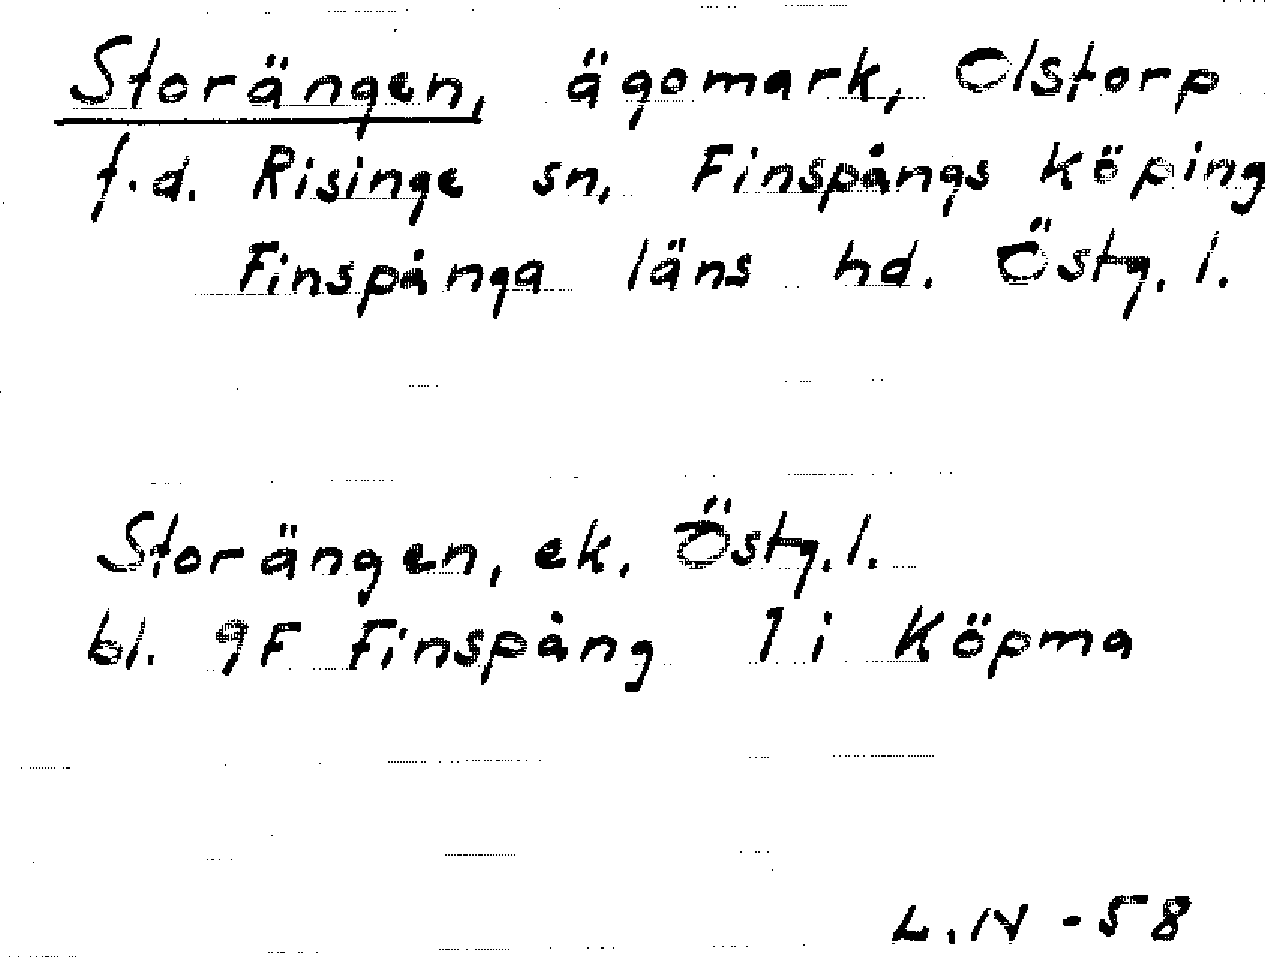 Storängen, ägomark, Olstorp
f.d. Risinge sn, Finspångs köping
Finspånga läns hd. Östg. l.
Storängen, ek. Östg. l.
bl. 9F Finspång 1 i Köpma
L. N - 58